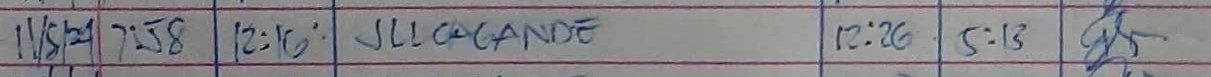 11/5/24 7:58 12:16 JLLCACANDE 12:26 5:13